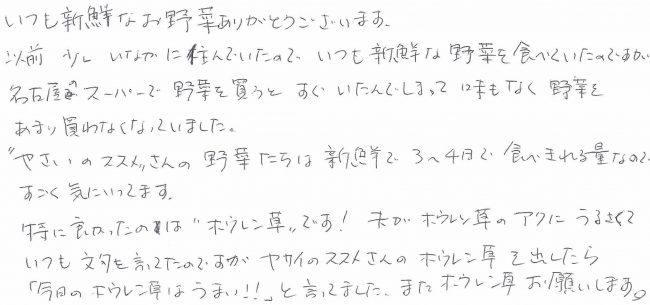 いつも新鮮なお野菜ありがとうございます。
以前 少し いなかに住んでいたので、いつも新鮮な野菜を食べていたのですが
名古屋のスーパーで野菜を買うと すぐ いたんでしまって 味もなく 野菜を
あまり買わなくなっていました。
"やさいのススメ"さんの 野菜たちは 新鮮で 3〜4日で 食べきれる量なので
すごく気にいってます。
特に良かったのは"ホウレン草"です! 夫が ホウレン草のアクに うるさくて
いつも 文句を言ってたのですが ヤサイのススメさんの ホウレン草を出したら
「今日のホウレン草はうまい!!」と言ってました、また ホウレン草 お願いします。